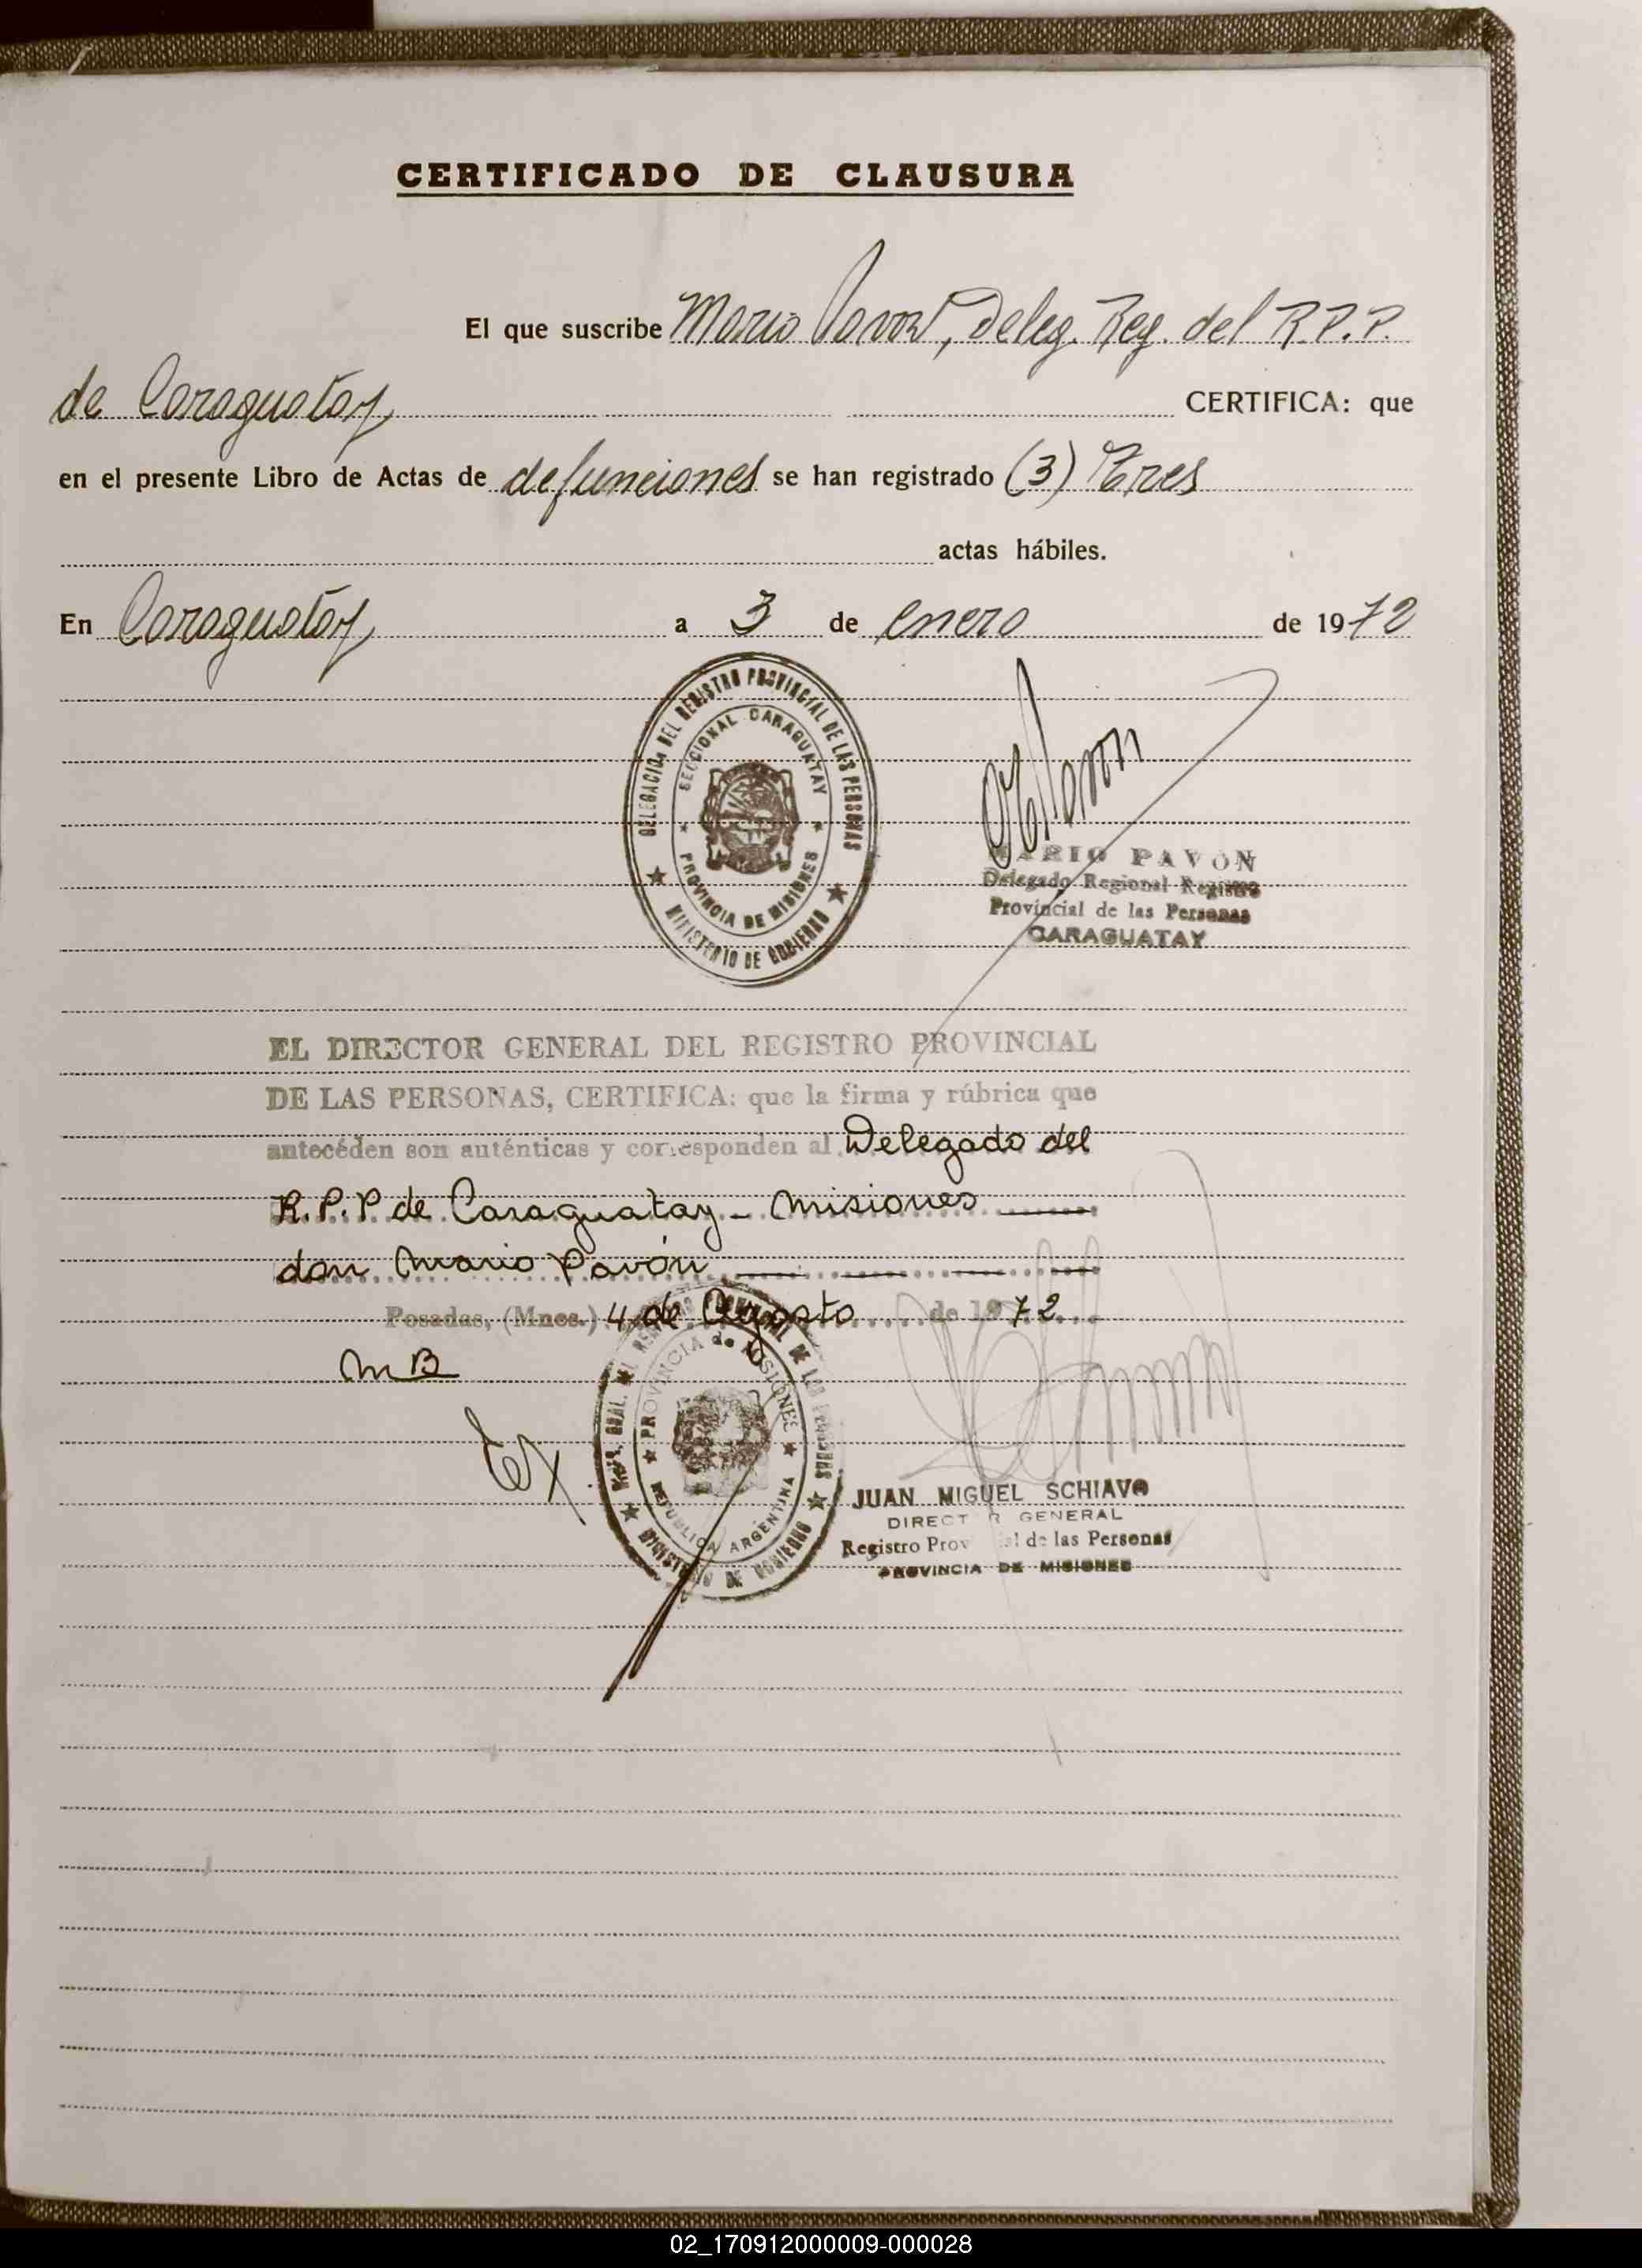 CERTIFICADO DE CLAUSURA
El que suscribe Mario Pavon, Deleg. Reg. del R.P.P.
de Caraguatay CERTIFICA: que
en el presente Libro de Actas de defunciones se han registrado (3) Tres
actas hábiles.
En Caraguatay a 3 de enero de 1972
DELEGACION DEL REGISTRO PROVINCIAL DE LAS PERSONAS
SECCIONAL CARAGUATAY
PROVINCIA DE MISIONES
MINISTERIO DE GOBIERNO
MARIO PAVON
Delegado Regional Registro
Provincial de las Personas
CARAGUATAY
EL DIRECTOR GENERAL DEL REGISTRO PROVINCIAL
DE LAS PERSONAS, CERTIFICA: que la firma y rúbrica que
antecéden son auténticas y corresponden al Delegado del
R.P.P de Caraguatay - Misiones
don Mario Pavón
Posadas, (Mnes.) 4 de Agosto de 1972
MB
GRAL. DEL REGISTRO PROVINCIAL DE LAS PERSONAS
PROVINCIA de MISIONES
REPUBLICA ARGENTINA
MINISTERIO DE GOBIERNO
JUAN MIGUEL SCHIAVO
DIRECTOR GENERAL
Registro Provincial de las Personas
PROVINCIA DE MISIONES
02_170912000009-000028